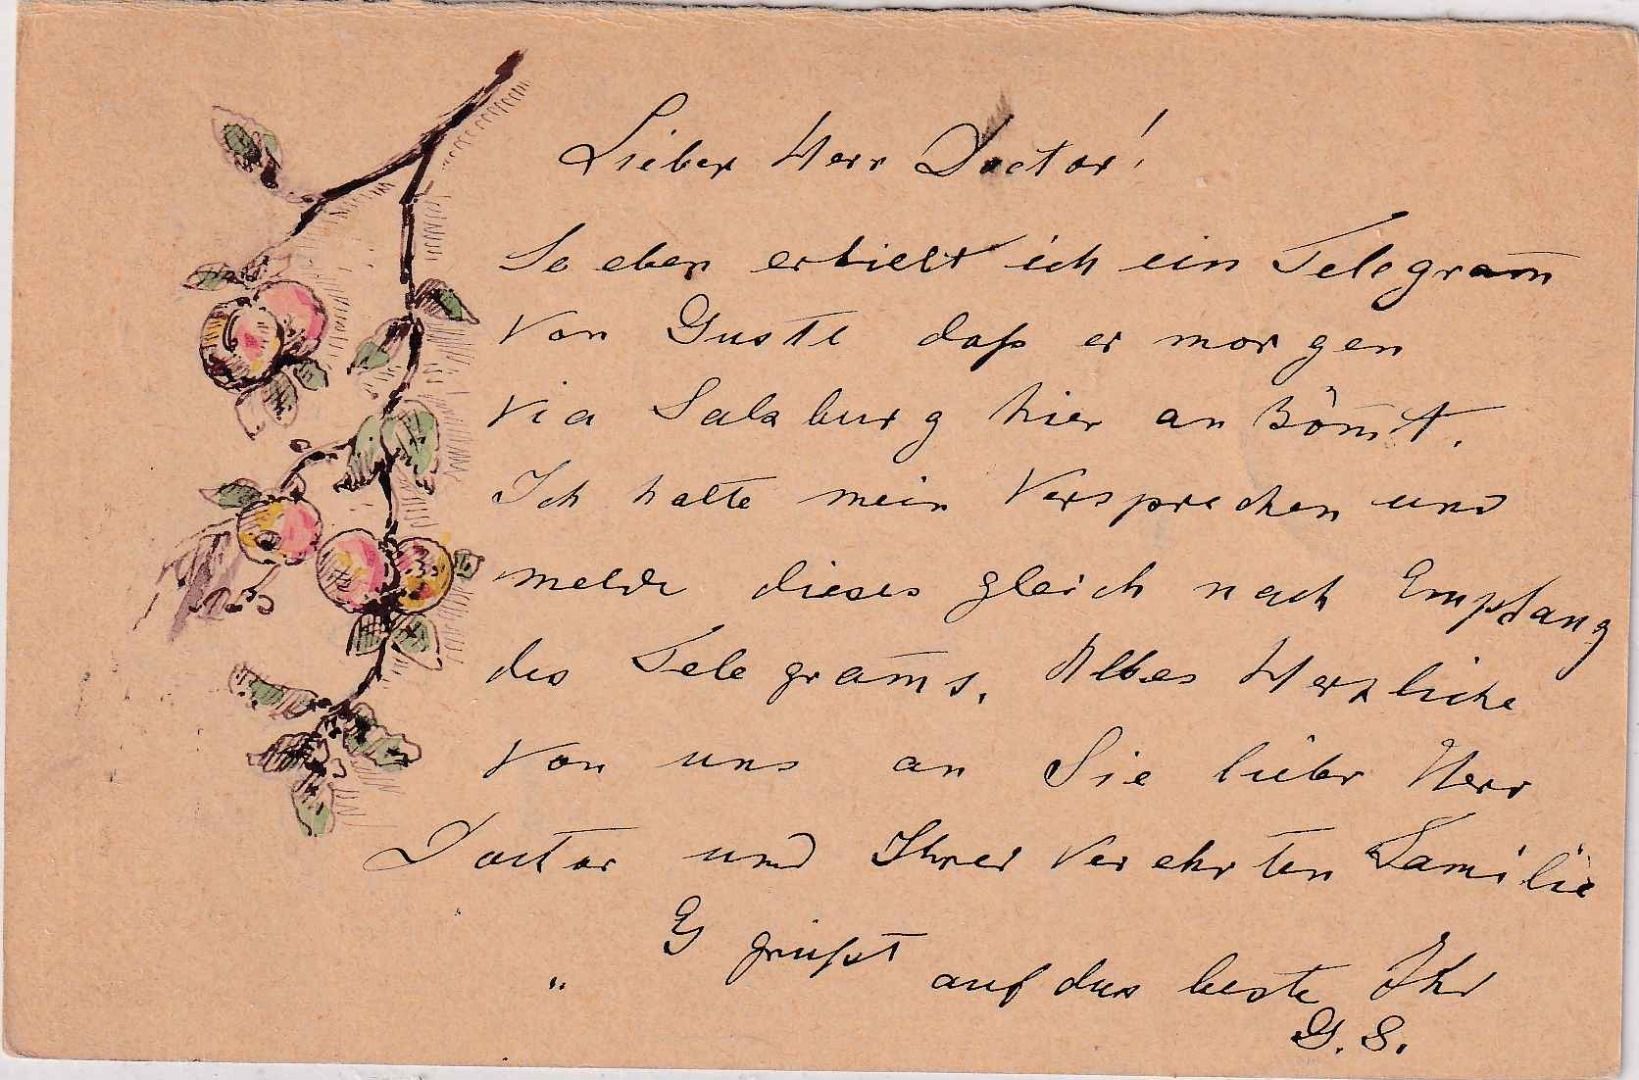 Lieber Herr Doctor!
So eben erhielt ich ein Telegram̅
von Gustl daß er morgen
via Salzburg hier an köm̅t.
Ich halte mein Versprechen und
melde dieses gleich nach Empfang
des Telegram̅s. Alles Herzliche
von uns an Sie lieber Herr
Doctor und Ihrer verehrten Familie
Es grüßt auf das beste Ihr
G. S.